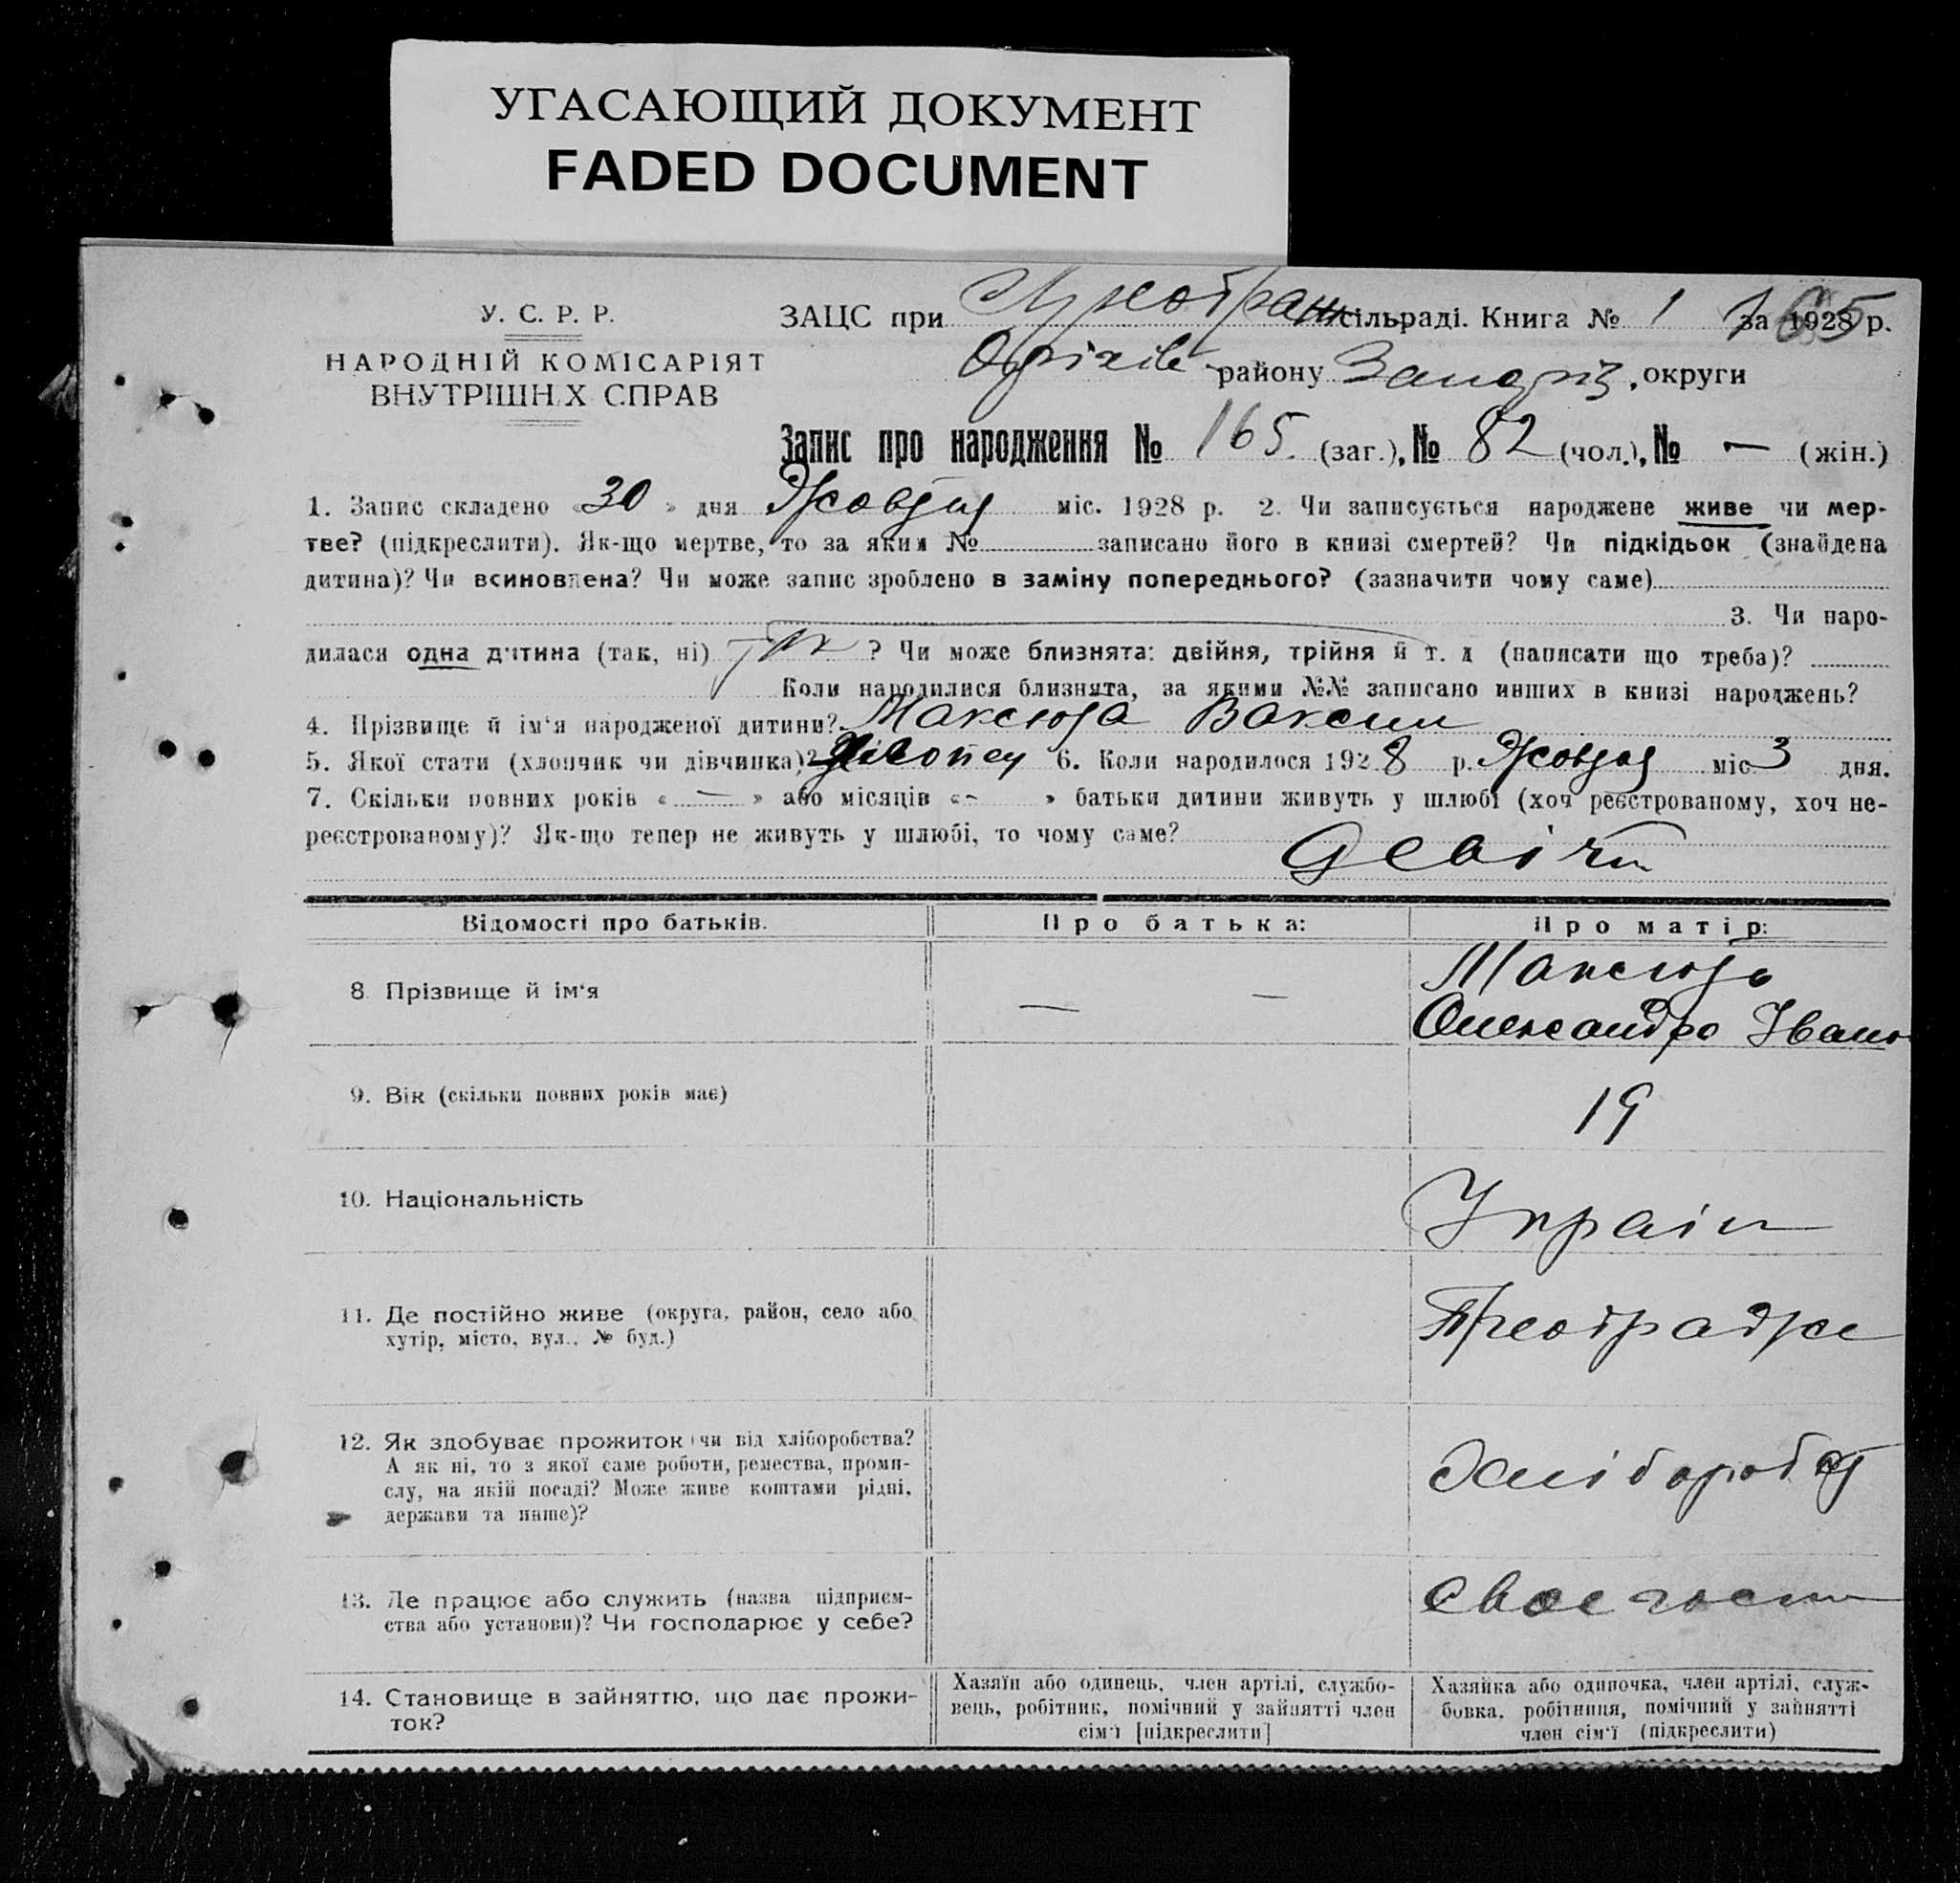 УГАСАЮЩИЙ ДОКУМЕНТ
FADED DOCUMENT
У. С. Р. Р.
НАРОДНІЙ КОМІСАРІЯТ
ВНУТРІШНІХ СПРАВ
ЗАЦС при Преображ сільраді. Книга № 1 за 1928 р.
165
Оріхів району Запоріз. округи
Запис про народження № 165. (заг.), № 82 (чол.), № — (жін.)
1. Запис складено «30» дня Жовтня міс. 1928 р. 2. Чи записується народжене живе чи мер-
тве? (підкреслити). Як-що мертве, то за яким № записано його в книзі смертей? Чи підкідьок (знайдена
дитина)? Чи всиновлена? Чи може запис зроблено в заміну попереднього? (зазначити чому саме)
3. Чи наро-
дилася одна дитина (так, ні) ? Чи може близнята: двійня, трійня й т. д (написати що треба)?
Коли народилися близнята, за якими №№ записано инших в книзі народжень?
4. Прізвище й ім'я народженої дитини? Максюта
5. Якої стати (хлопчик чи дівчинка)? 6. Коли народилося 1928 р. Жовтня міс 3 дня.
7. Скільки повних років « — » або місяців « - » батьки дитини живуть у шлюбі (хоч реєстрованому, хоч не-
реєстрованому)? Як-що тепер не живуть у шлюбі, то чому саме?
Відомості про батьків.
Про батька:
Про матір:
8. Прізвище й ім'я
— —
Максюта
Олександра Іван
9. Вік (скільки повних років має)
19
10. Національність
Украін
11. Де постійно живе (округа, район, село або
хутір, місто, вул., № буд.)
12. Як здобуває прожиток чи від хліборобства?
А як ні, то з якої саме роботи, ремества, проми-
слу, на якій посаді? Може живе коштами рідні,
держави та инше)?
13. Де працює або служить (назва підприєм-
ства або установи)? Чи господарює у себе?
14. Становище в зайняттю, що дає прожи-
ток?
Хазяїн або одинець, член артілі, службо-
вець, робітник, помічний у зайнятті член
сім'ї [підкреслити]
Хазяйка або одиночка, член артілі, служ-
бовка, робітниця, помічний у зайнятті
член сім'ї (підкреслити)